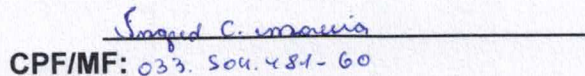 Ingrid C. Moreira
CPF/MF: 033.504.481-60